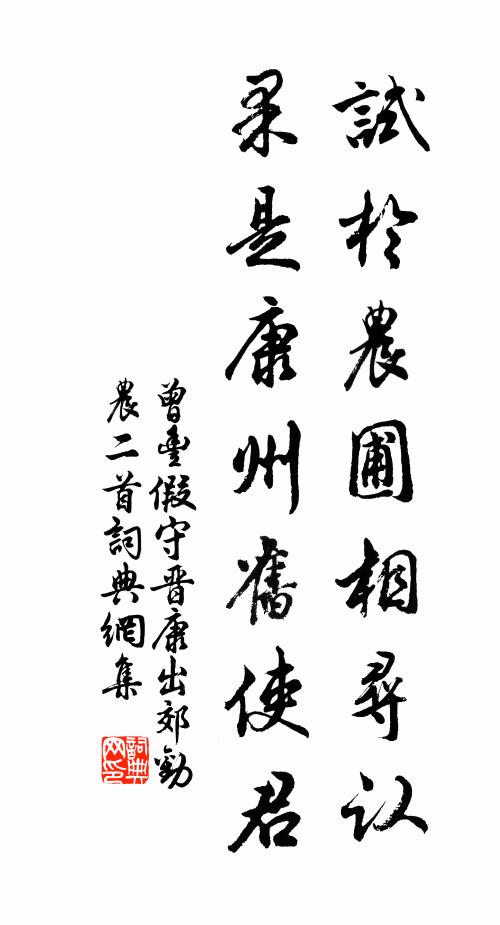 試於農圃相尋認
果是康州舊使君
曾豊假守晋康出郊勸
農二首詞典網集
詞典
网印